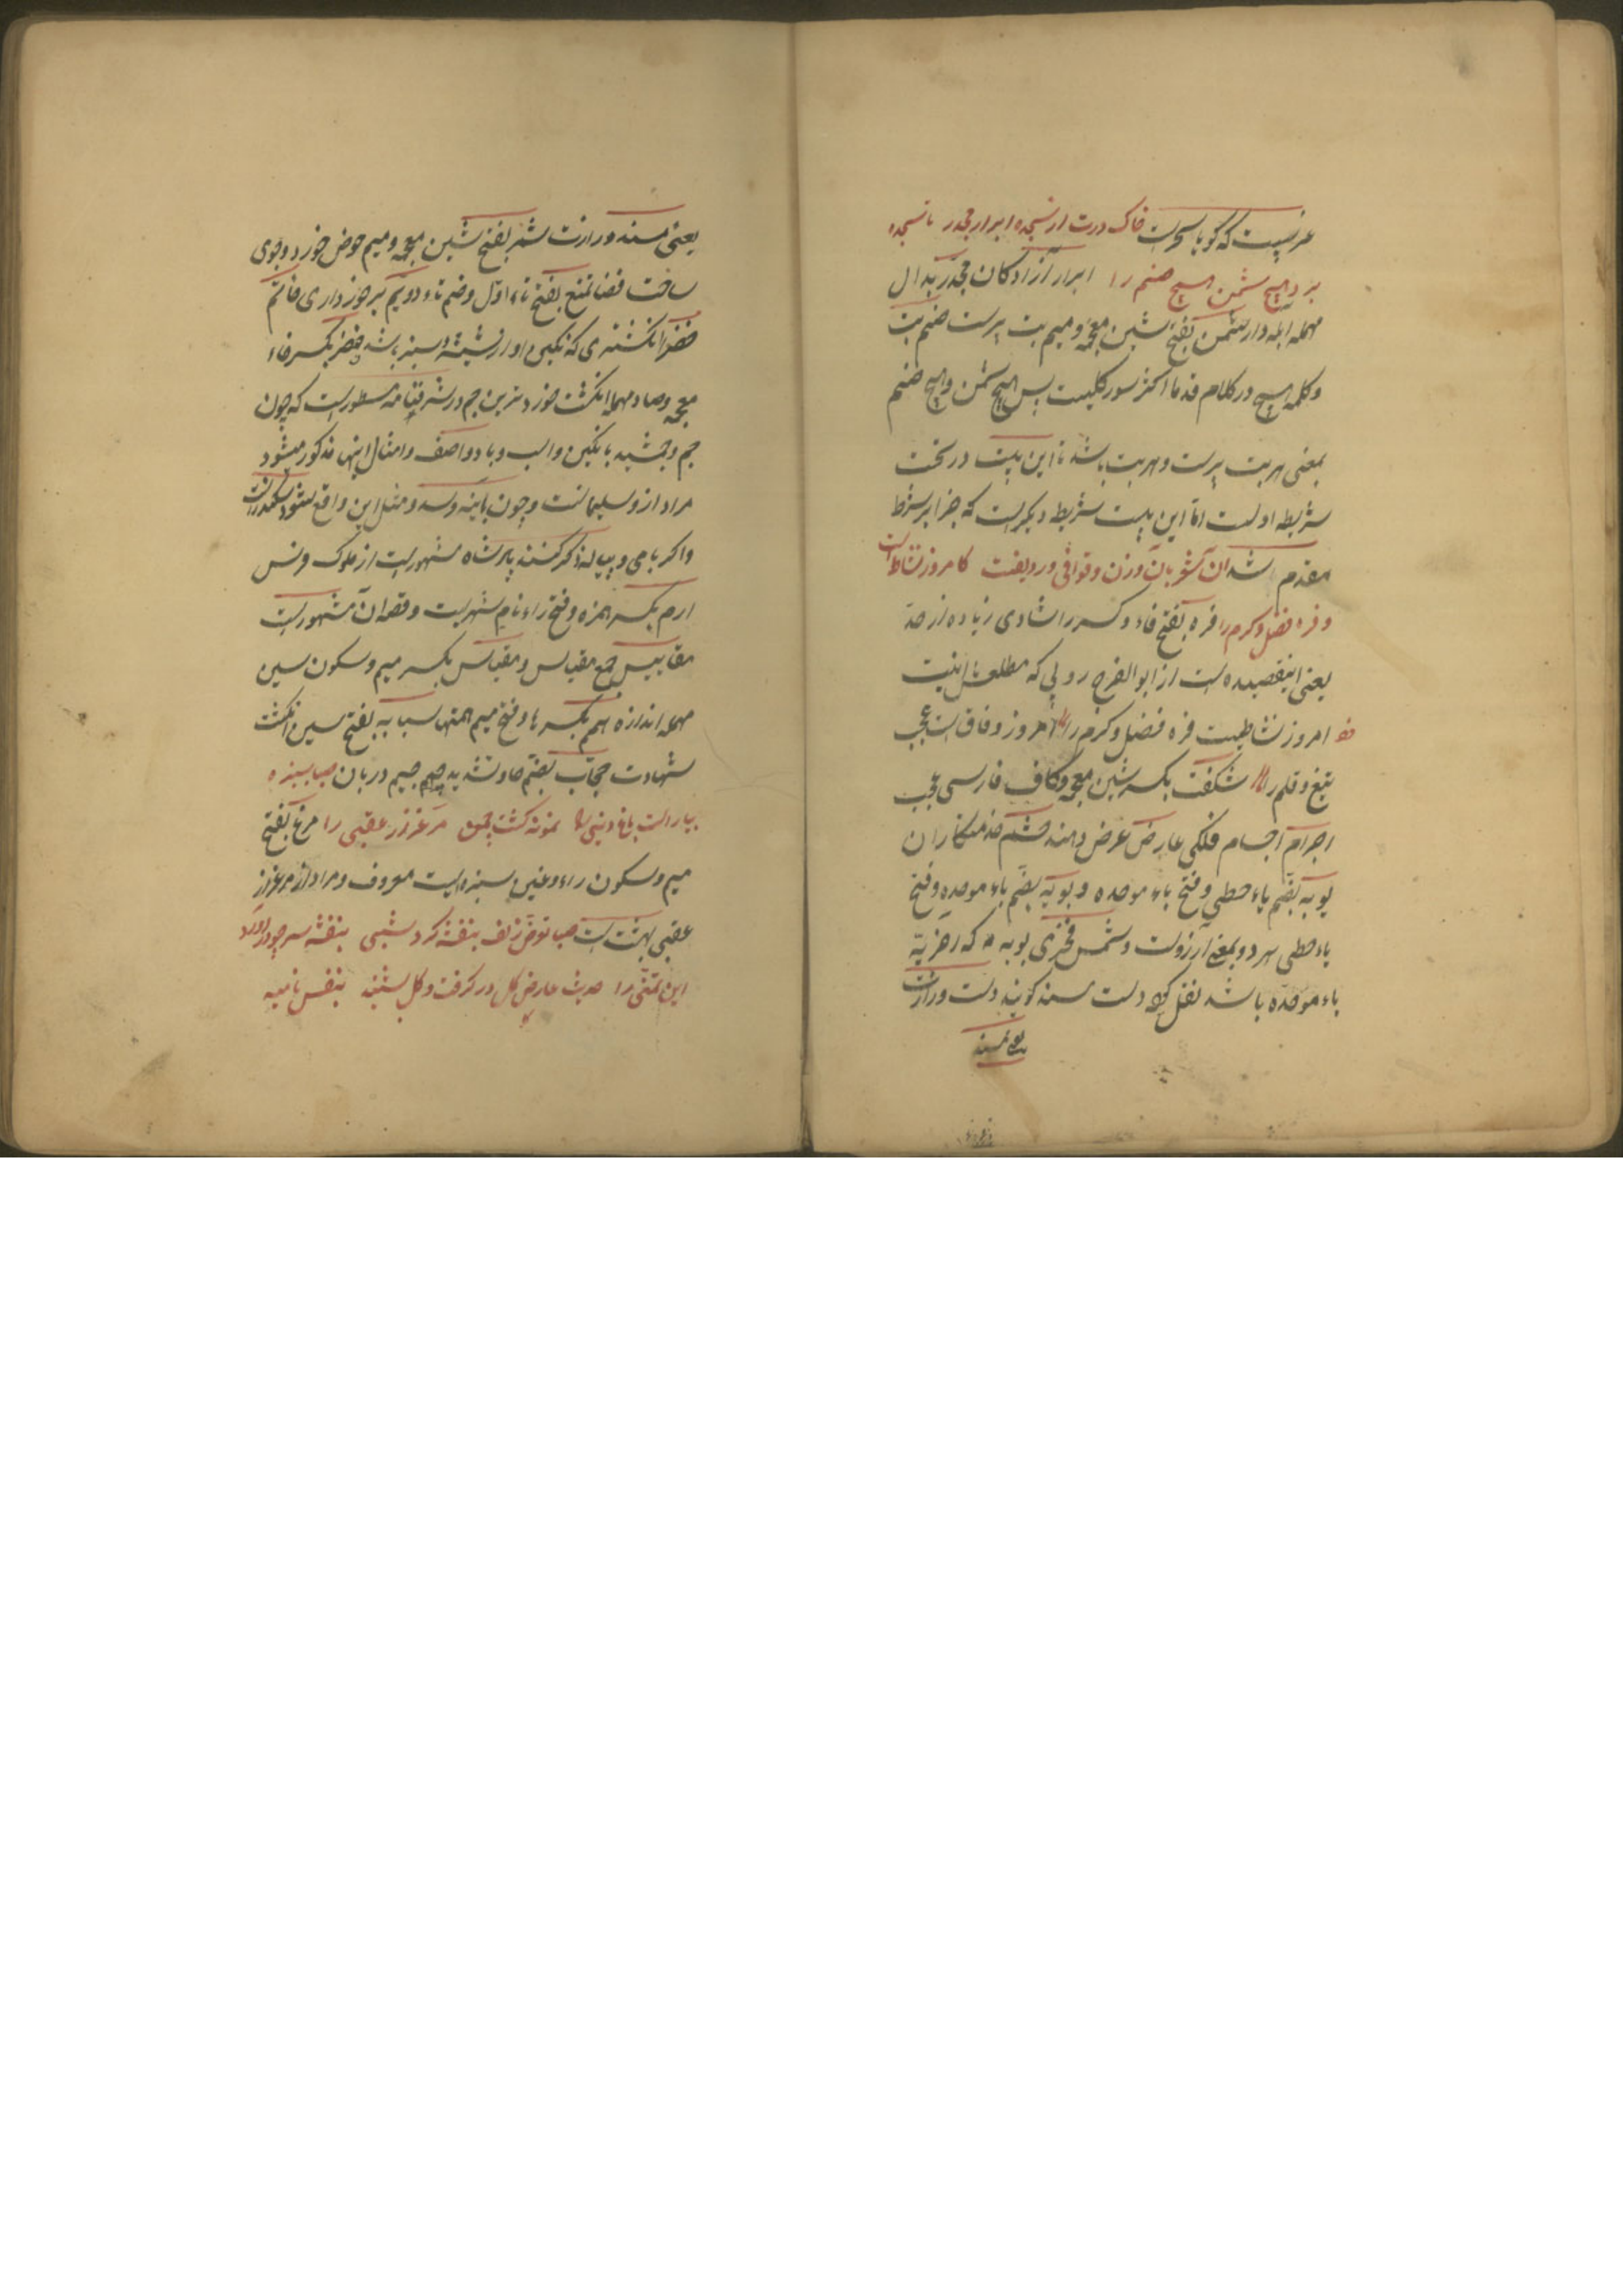 عربیست که گویا سحر است خاک درت از سجده ابرار مجدر تا سجده
برد هیچ شمن هیچ صنم را ابرار آزادگان مجدر بدال
مهمله آبله دار شمن بفتح شین معجمه و میم بت پرست صنم بت
و کلمه هیچ در کلام قدما اکثر سور کلیست پس هیچ شمن و هیچ صنم
بمعنی هر بت پرست و هر بت باشد تا این بیت در تحت
شریطه اولست اما این بیت شریطه دیگر است که جزا بر شرط
مقدم شد آن شعر بان وزن و قوافی و ردیفت کامروز نشاط است
و فره فضل و کرم را فره بفتح فاء و کسر را شادی زیاده از حد
یعنی اینقصیده است از ابوالفرج رونی که مطلعش اینست
امروز نشاطیست فره فضل و کرم را امروز وفاق است عجب
تیغ و قلم را شگفت بکسر شین معجمه و کاف فارسی عجب
اجرام اجسام فلکی عارض عرض دهنده حشم خدمتکاران
یوبه بضم یاء حطی و فتح باء موحده و بویه بضم باء موحده و فتح
یاء حطی هر دو بمعنی آرزوست و شمس فخری یوبه که
باء موحده باشد نقل کرده دست مسند گویند دست وزارت
یعنی مسند
یعنی مسند وزارت شمر بفتح شین معجمه و میم حوض خورد و جوی
ساخت فضا تمتع بفتح تاء اول و ضم تاء دویم برخورداری خاتم
خضرا انگشتری که نگین او از شیشه سبز باشد خنصر بکسر خاء
معجمه و صاد مهمله انگشت خوردترین جم در شرفنامه مسطور است که چون
جم و جمشید با نگین و اسب و باد و آصف و امثال اینها مذکور میشود
مراد از و سلیمانست و چون با آینه و سد و مثل این واقع شود سکندر است
و اگر با می و پیاله ذکر کنند پادشاه مشهور است از ملوک فرس
ارم بکسر همزه و فتح راء نام شهریست و قصه آن مشهور است
مقاییس جمع مقیاس و مقیاس بکسر میم و سکون سین
مهمله اندازه همم بکسر ها و فتح میم همتها سبابه بفتح سین انگشت
شهادت حجاب بضم حا و تشدید جیم جیم دربان صبا سبزه
بیاراست باغ دنیی را نمونه گشت چمن مرغزار عقبی را مرغ بفتح
میم و سکون راء و غین سبزه ایست معروف و مراد از مرغزار
عقبی بهشت است صبا تعرض زلف بنفشه کرد شبی بنفشه سر چو در آورد
این تمنی را حدیث عارض گل در گرفت و گل بشنید بنفس نامیه